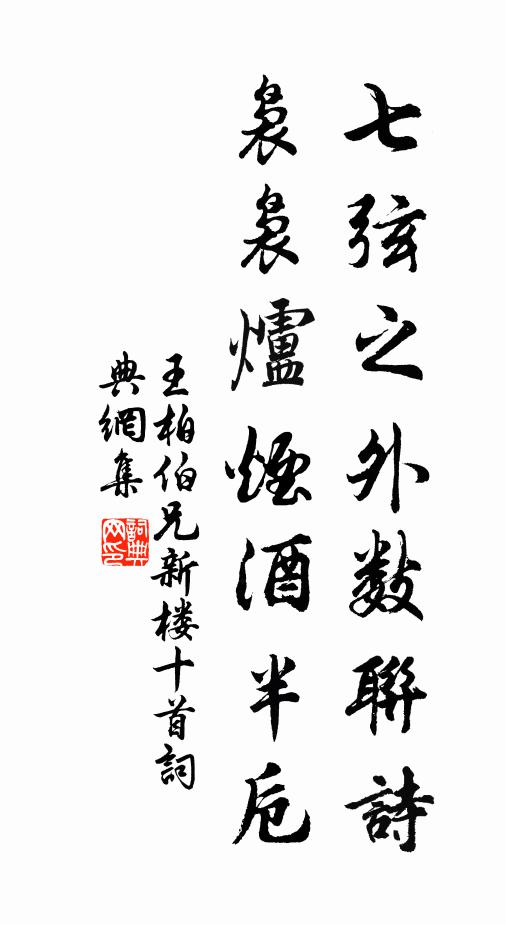 七弦之外數聯詩
裊裊爐煙酒半卮
王柏伯兄新楼十首詞
典網集
詞典
网印